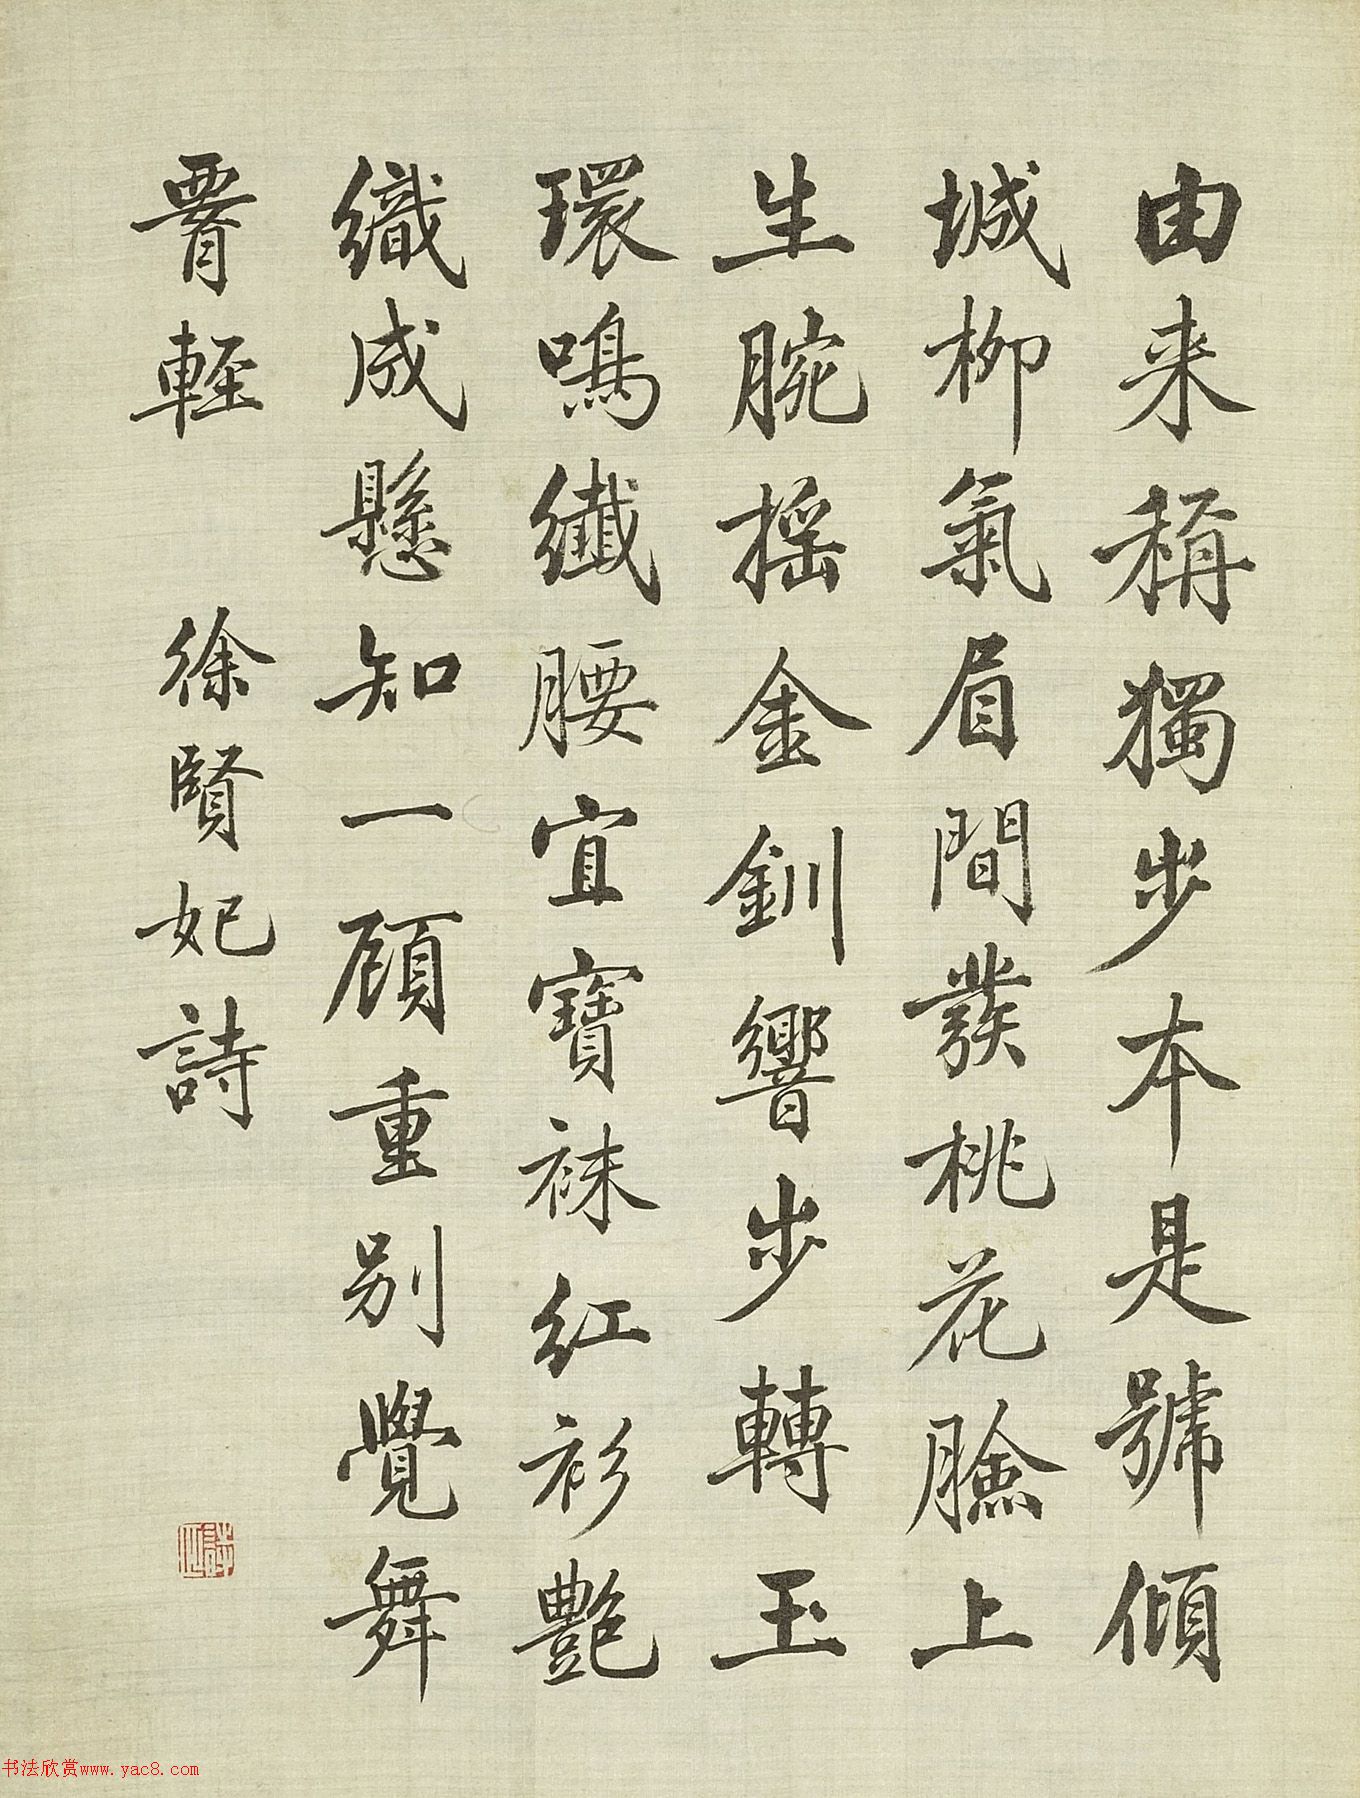 由来稱獨步本是號傾
城柳氣眉間發桃花臉上
生腕摇金釧響步轉玉
環鳴纖腰宜寶袜紅衫艶
織成懸知一顧重别覺舞
腰輕 徐賢妃詩
书法欣赏www.yac8.com